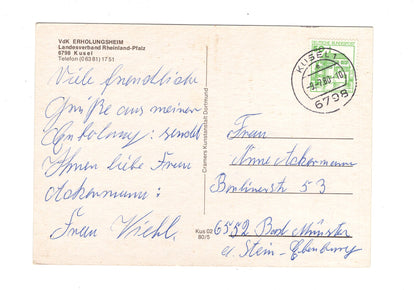 VdK ERHOLUNGSHEIM
Landesverband Rheinland-Pfalz
6798 Kusel
Telefon (06381) 1751
Viele freundliche
Grüße aus meiner
Erholung: sendet
Ihnen liebe Frau
Ackermann:
Frau Viehl.
Cramers Kunstanstalt Dortmund
Kus 02
80/5
KUSEL 1
80-10
6798
Frau
Änne Ackermann
Berlinerstr 53
6552 Bad Münster
a. Stein-Ebernburg